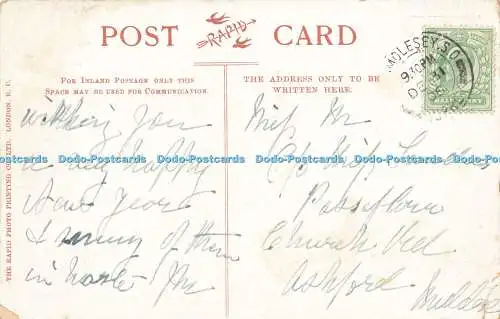 POST CARD
RAPID
FOR INLAND POSTAGE ONLY THIS
SPACE MAY BE USED FOR COMMUNICATION.
THE ADDRESS ONLY TO BE
WRITTEN HERE.
THE RAPID PHOTO PRINTING CO. LTD. LONDON, E.C.
MOLESEY. S.O
9.30PM
DE 31
wishing you
a very happy
New Year
& many of them
in haste
Miss
C/o Miss
Passiflora
Church Rd
Ashford
Dodo-Postcards Dodo-Postcards Dodo-Postcards Dodo-Postcards Dodo-Postcards